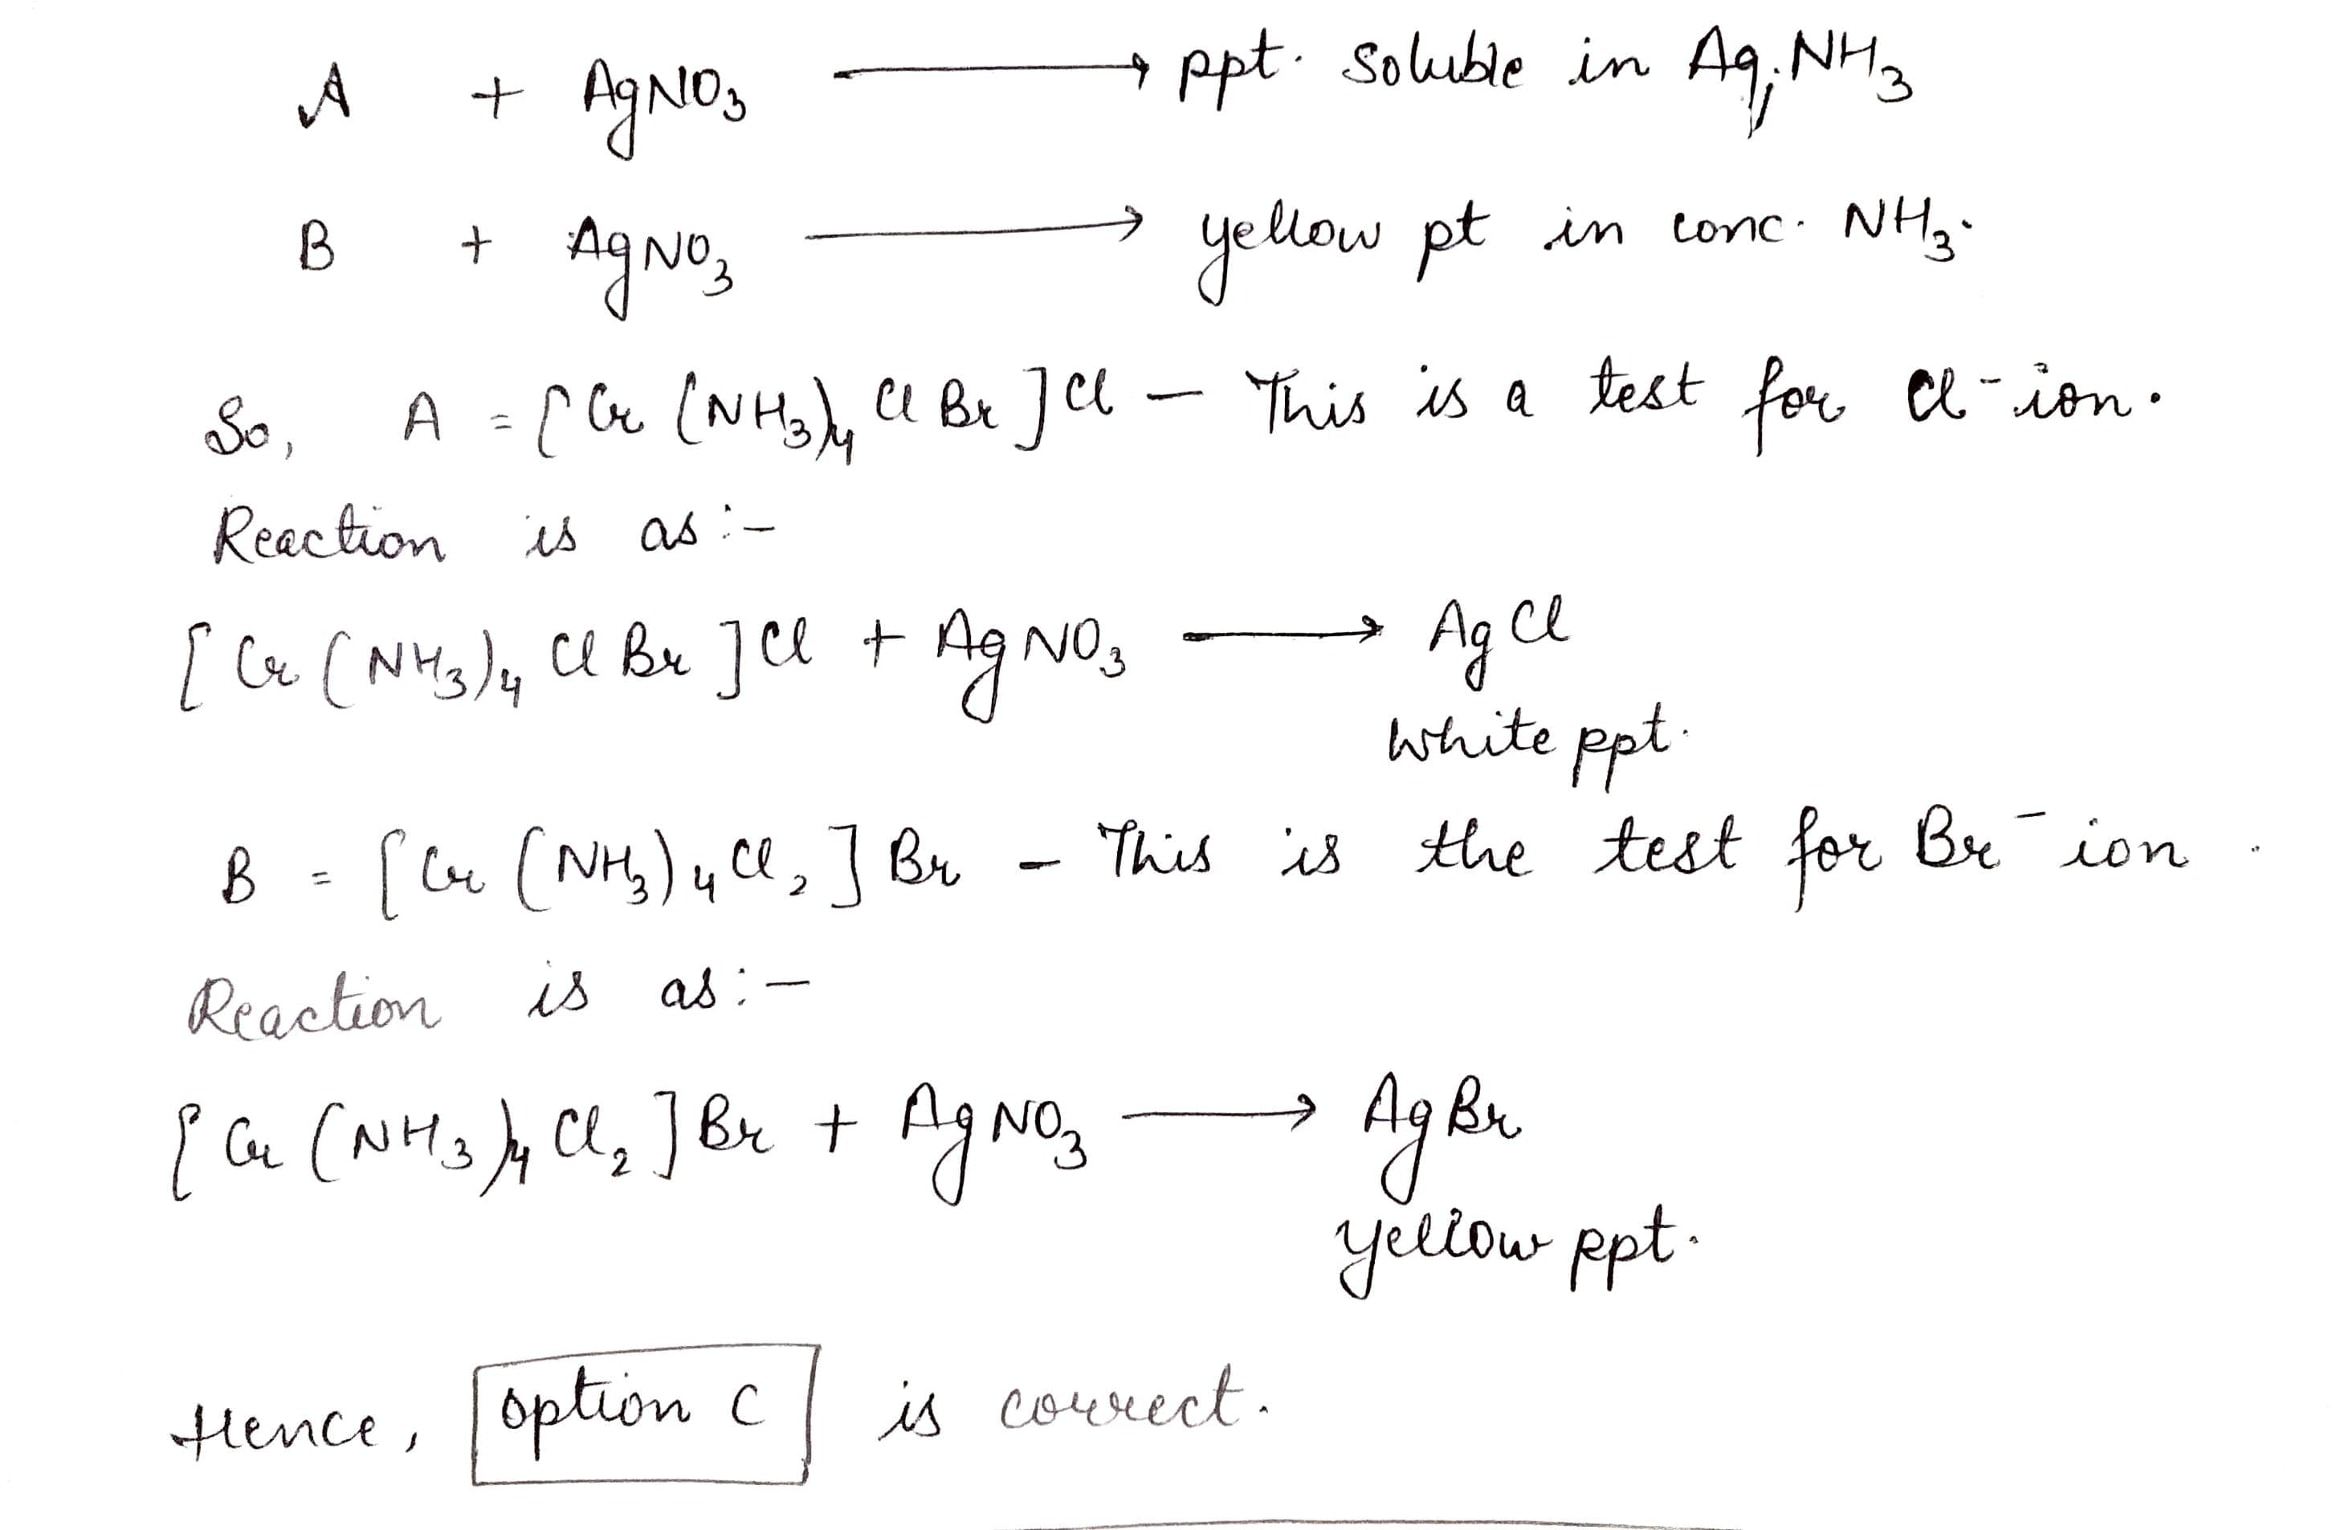 A + AgNO₃ ⟶ ppt. soluble in Aq. NH₃
B + AgNO₃ ⟶ yellow pt in conc. NH₃.
So, A = [Cr (NH₃)₄ Cl Br ] Cl – This is a test for Cl⁻ ion.
Reaction is as :-
[Cr (NH₃)₄ Cl Br ] Cl + AgNO₃ ⟶ AgCl
White ppt.
B = [Cr (NH₃)₄ Cl₂ ] Br – This is the test for Br⁻ ion.
Reaction is as :-
[Cr (NH₃)₄ Cl₂ ] Br + AgNO₃ ⟶ AgBr
yellow ppt.
Hence, option C is correct.